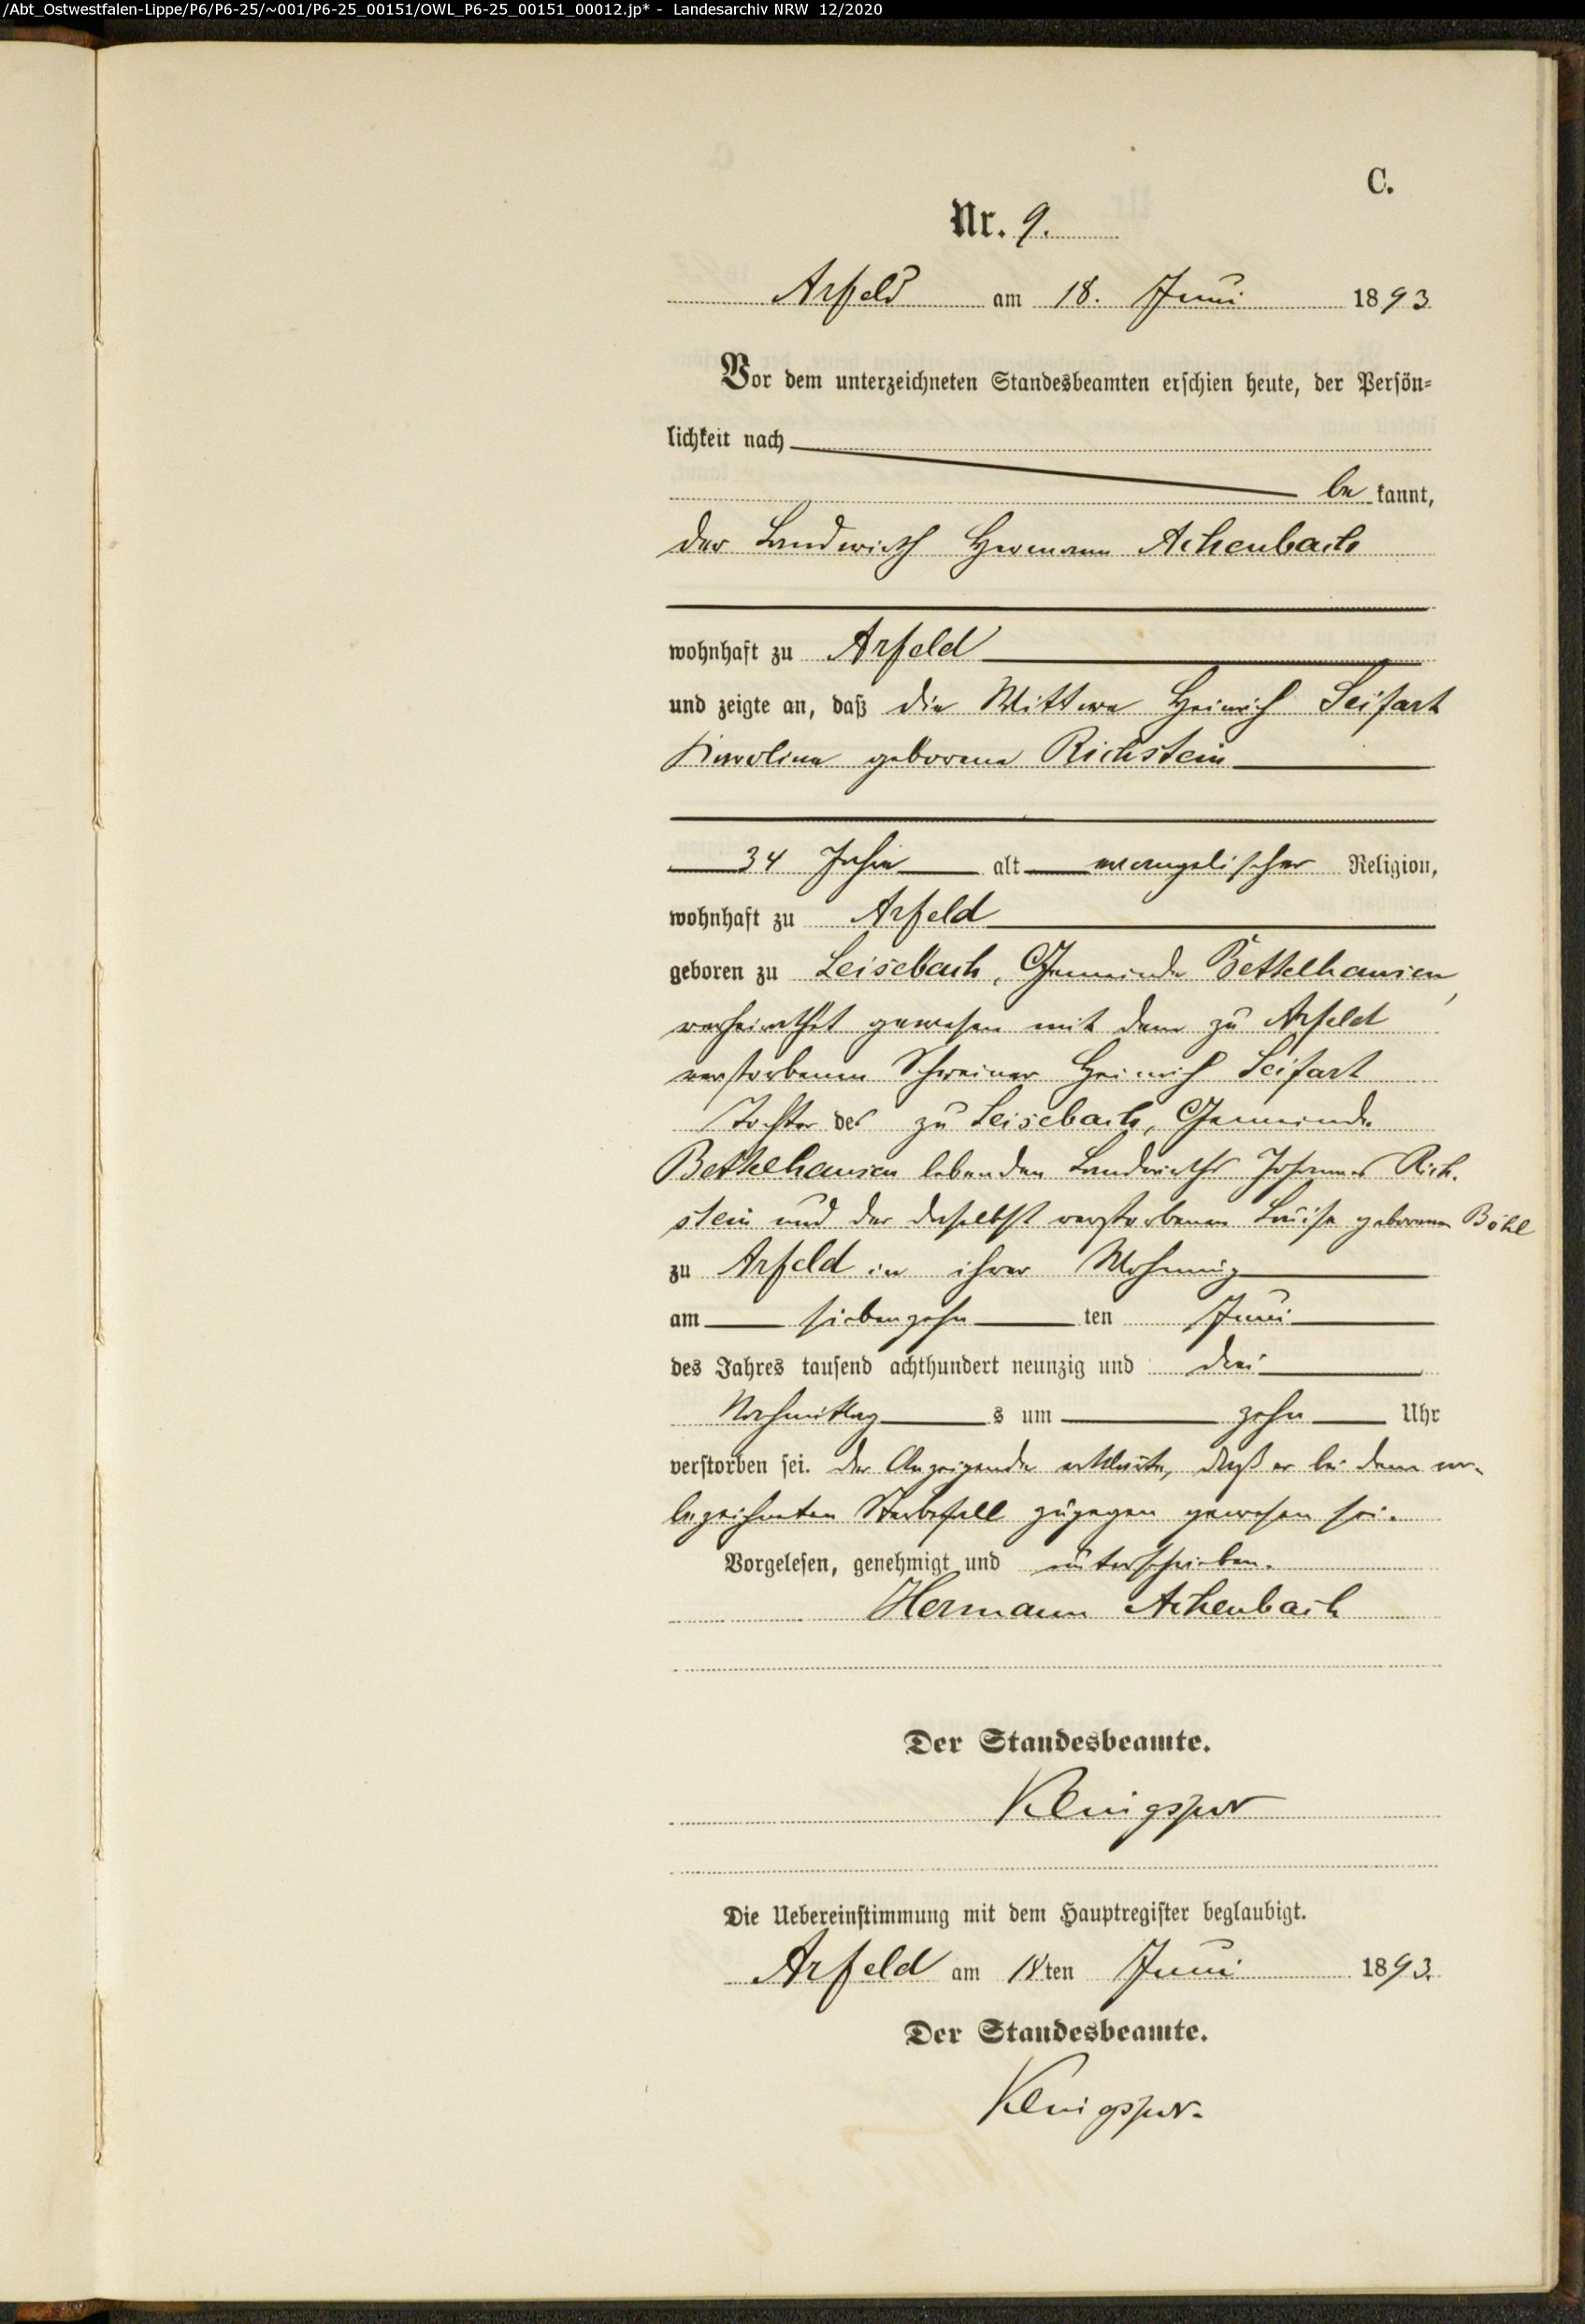 /Abt_Ostwestfalen-Lippe/P6/P6-25/~001/P6-25_00151/OWL_P6-25_00151_00012.jp* - Landesarchiv NRW 12/2020
C.
Nr. 9.
Arfeld am 18. Juni 1893
Vor dem unterzeichneten Standesbeamten erschien heute, der Persön-
lichkeit nach
bekannt,
der Landwirth Hermann Achenbach
wohnhaft zu Arfeld
und zeigte an, daß die Wittwe Heinrich Seifart
Karoline geborene Richstein
34 Jahre alt evangelischer Religion,
wohnhaft zu Arfeld
geboren zu Leisebach, Gemeinde Bettelhausen,
verheirathet gewesen mit dem zu Arfeld
verstorbenen Schreiner Heinrich Seifart
Tochter des zu Leisebach, Gemeinde
Bettelhausen lebenden Landwirths Johannes Rich-
stein und der daselbst verstorbenen Louise geborenen
zu Arfeld in ihrer Wohnung
am siebenzehnten Juni
des Jahres tausend achthundert neunzig und drei
Nachmittags um zehn Uhr
verstorben sei. Der Anzeigende erklärte, daß er bei dem vor-
bezeichneten Sterbefall zugegen gewesen sei.
Vorgelesen, genehmigt und unterschrieben.
Hermann Achenbach
Der Standesbeamte.
Die Uebereinstimmung mit dem Hauptregister beglaubigt.
Arfeld am 18ten Juni 1893.
Der Standesbeamte.